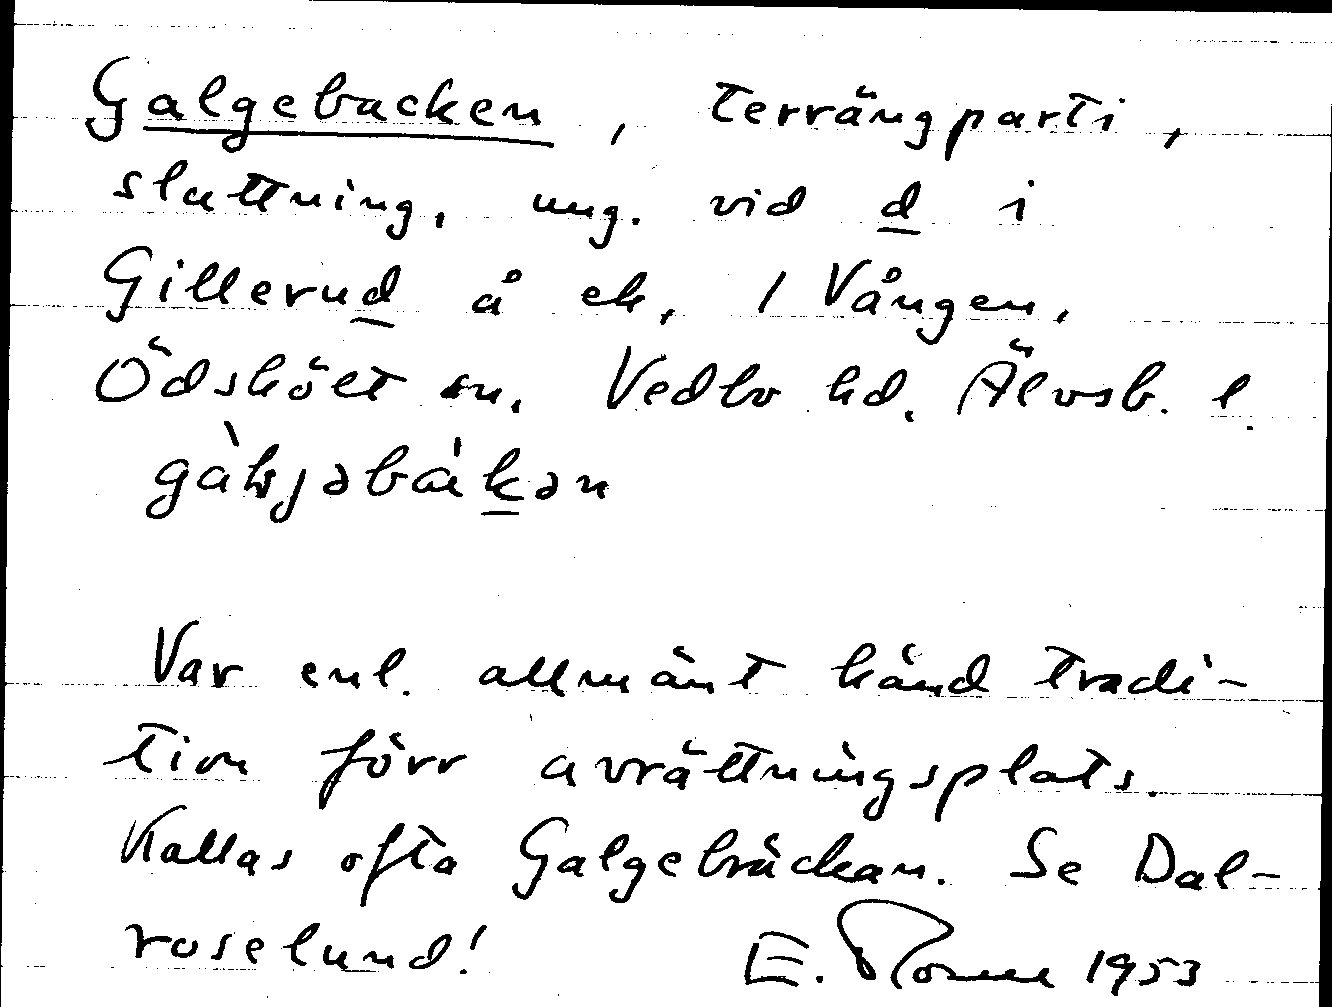 Galgebacken, terrängparti,
sluttning, ung. vid d i
Gillerud å ek, 1 Vången,
Ödskölt sn. Vedbo hd. Älvsb. l.
gàlıjəbàkən
Var enl. allmänt känd tradi-
tion förr avrättningsplats.
Kallas ofta Galgebräckan. Se Dal-
roselund!
E. 1953